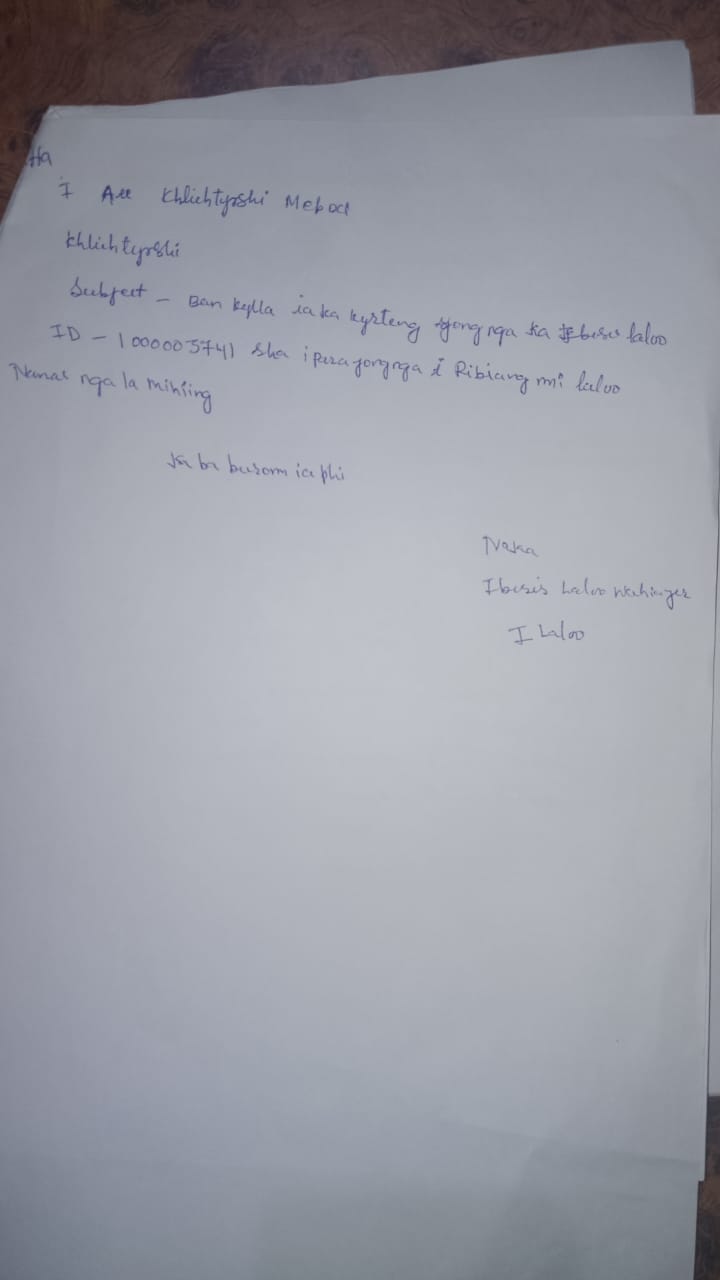 Ha
I All Khliehtyrshi Mebod
Khliehtyrshi
Subject - Ban kylla ia ka kyrteng jong nga ka Ibesis laloo
ID - 1000005741 sha i para jong nga i Ribiang mi laloo
Namar nga la mih iing
Ka ba burom ia phi
Naka
Ibesis Laloo
I Laloo